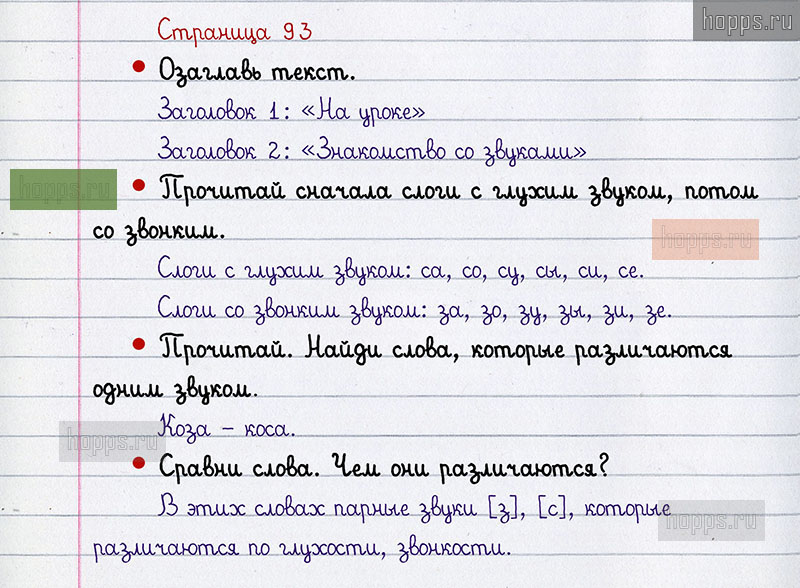 hopps.ru
Страница 93
• Озаглавь текст.
Заголовок 1: «На уроке»
Заголовок 2: «Знакомство со звуками»
hopps.ru
• Прочитай сначала слоги с глухим звуком, потом
со звонким.
hopps.ru
Слоги с глухим звуком: са, со, су, сы, си, се.
Слоги со звонким звуком: за, зо, зу, зы, зи, зе.
• Прочитай. Найди слова, которые различаются
одним звуком.
hopps.ru
Коза – коса.
• Сравни слова. Чем они различаются?
В этих словах парные звуки [з], [с], которые
hopps.ru
различаются по глухости, звонкости.